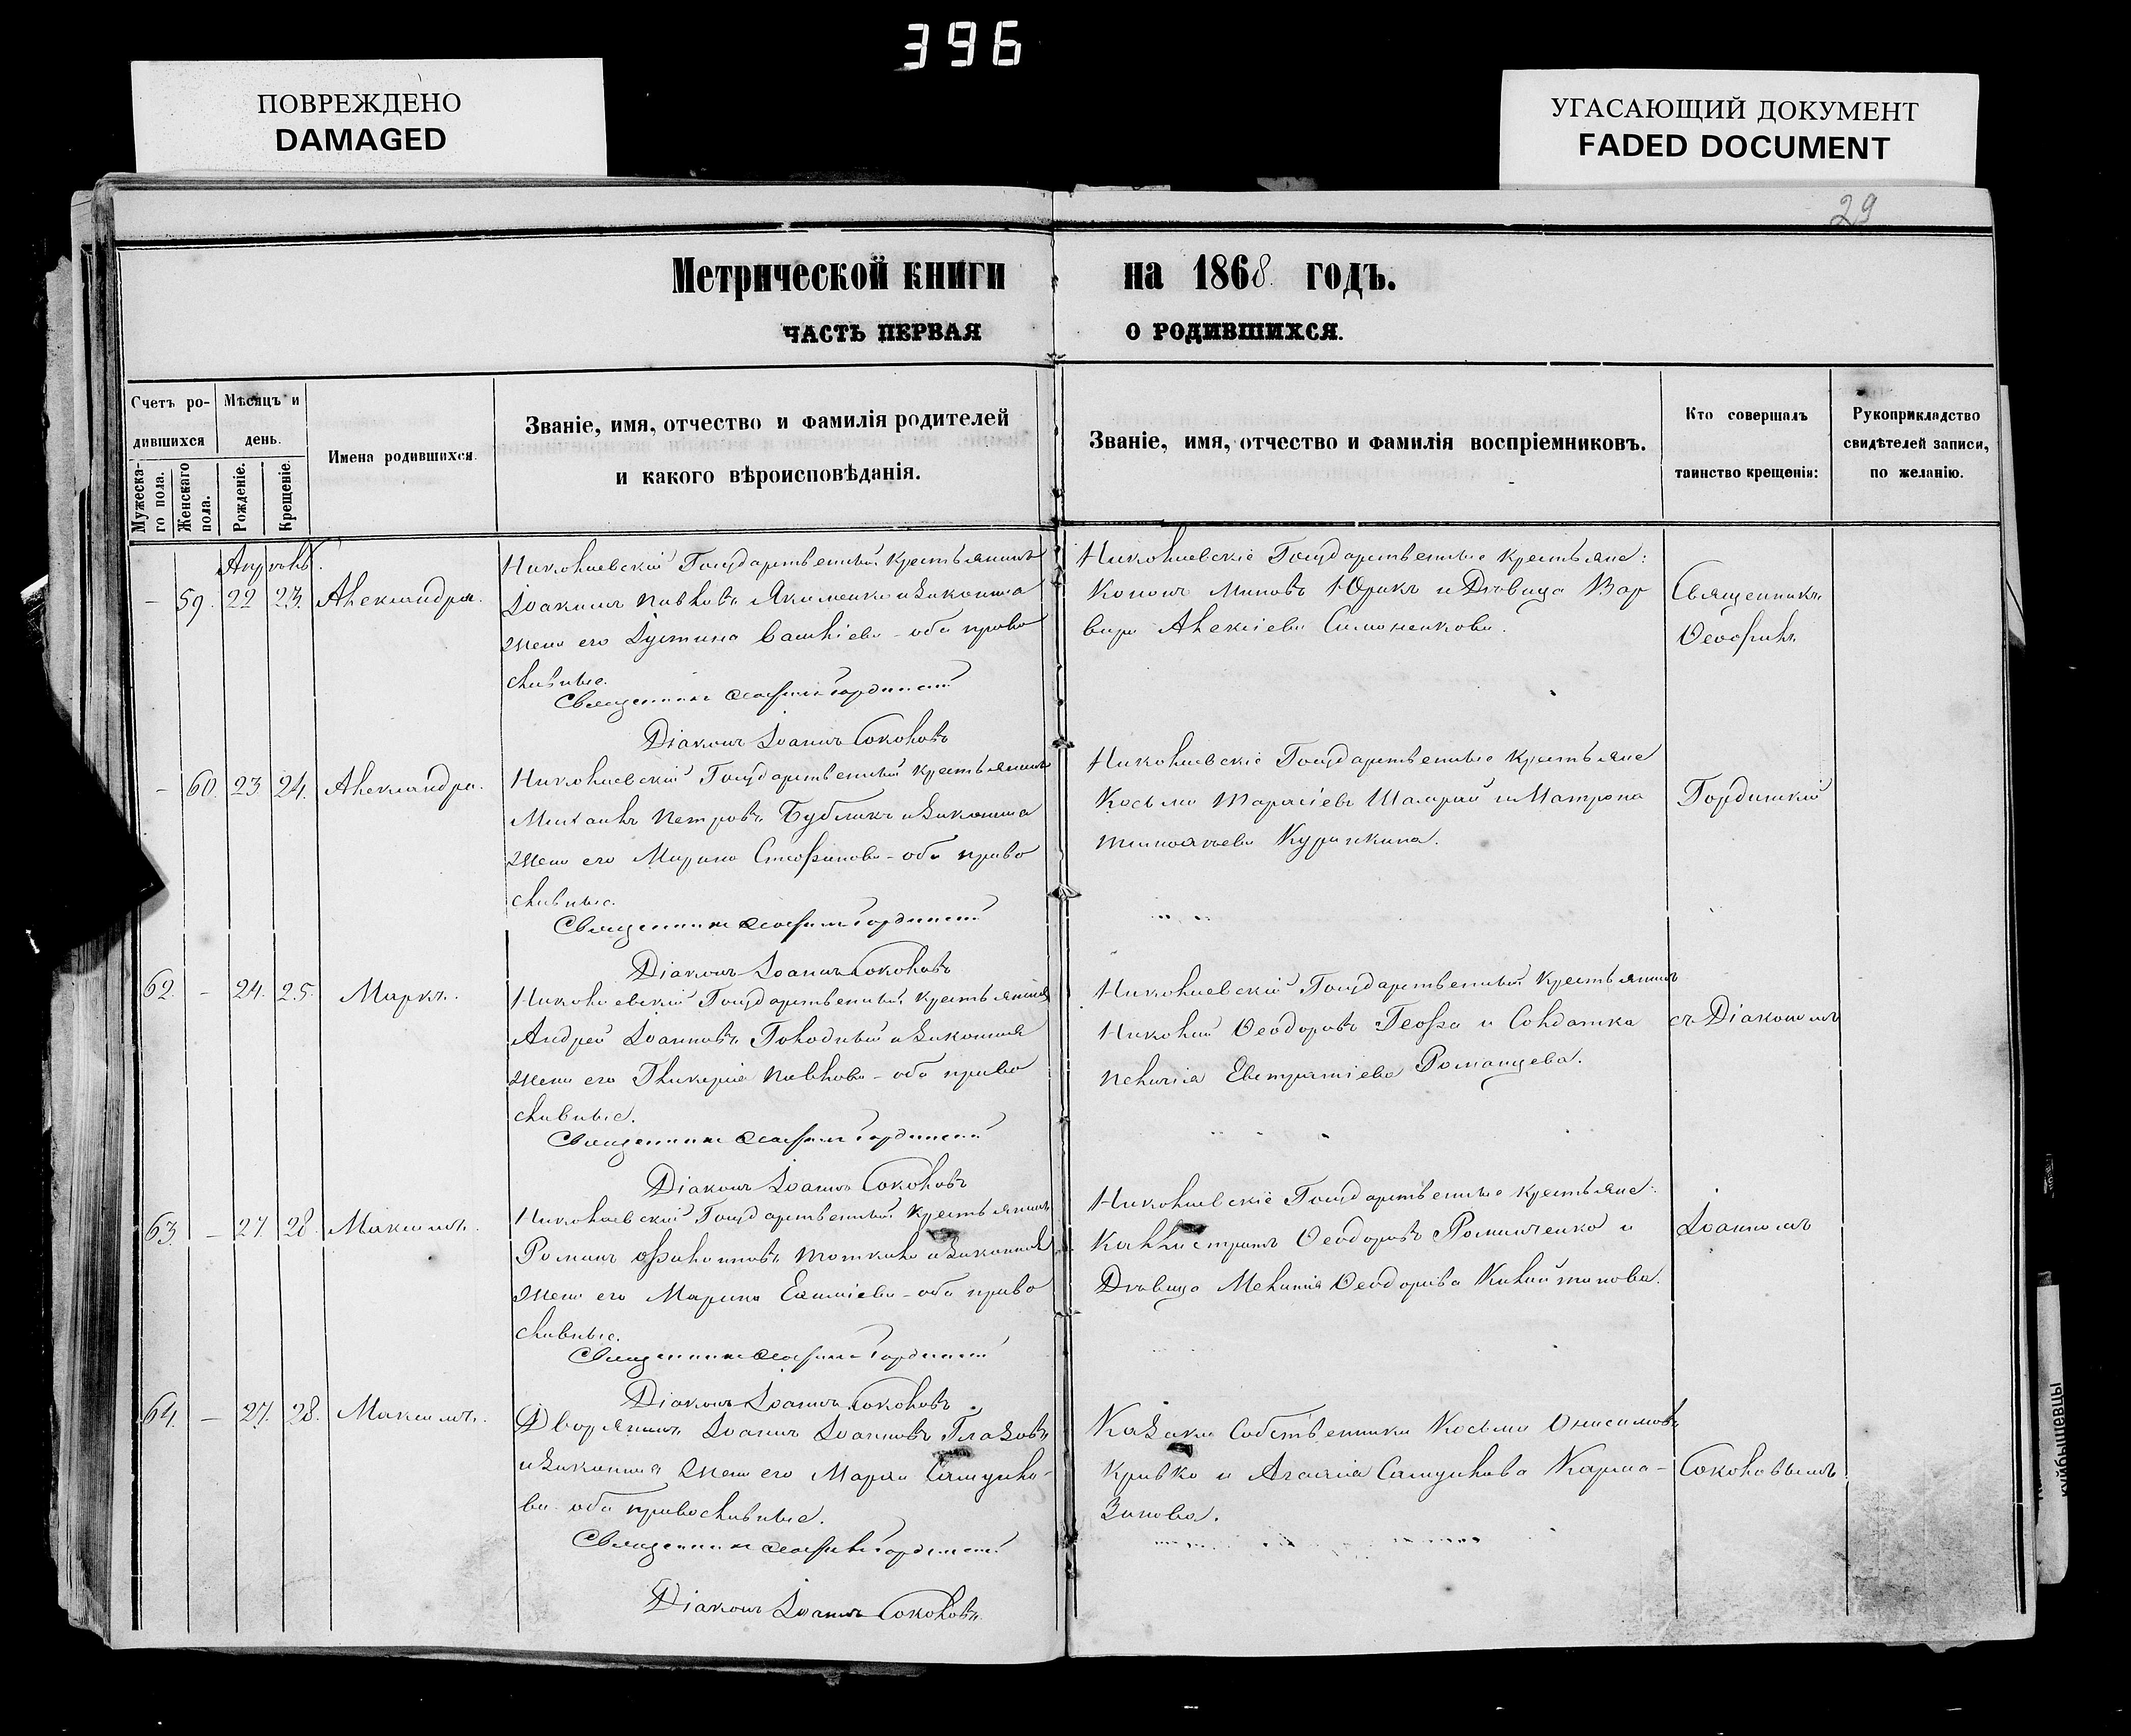 396
ПОВРЕЖДЕНО
DAMAGED
УГАСАЮЩИЙ ДОКУМЕНТ
FADED DOCUMENT
29
Метрической книги на 1868 годъ.
ЧАСТЬ ПЕРВАЯ О РОДИВШИХСЯ.
Счетъ ро-
дившихся
Мужеска-
го пола.
Женскаго
пола.
Мѣсяцъ и
день.
Рожденіе.
Крещеніе.
Имена родившихся.
Званіе, имя, отчество и фамилія родителей
и какого вѣроисповѣданія.
Званіе, имя, отчество и фамилія воспріемниковъ.
Кто совершалъ
таинство крещенія:
Рукоприкладство
свидѣтелей записи,
по желанію.
Апрѣль.
– 59. 22 23. Александра.
Николаевскій Государственный крестьянинъ
Іоакимъ Павловъ Якименко и законная
жена его Іустина – оба право
славные.
Священникъ Ѳеофилъ Гординскій
Діаконъ Іоаннъ Соколовъ
Николаевскіе Государственные крестьяне:
Кононъ Миновъ Юрикъ и Дѣвица Вар
вара Алексіева Симоненкова.
Священникъ
Ѳеофилъ
– 60. 23 24. Александра.
Николаевскій Государственный крестьянинъ
Михаилъ Петровъ Бубликъ и законная
жена его Марина Стефанова – оба право
славные.
Священникъ Ѳеофилъ Гординскій
Діаконъ Іоаннъ Соколовъ
Николаевскіе Государственные крестьяне
Косьма Тарасіевъ и Матрона
Курочкина.
Гординскій
62. – 24. 25. Маркъ.
Николаевскій Государственный крестьянинъ
Андрей Іоанновъ Голодный и законная
жена его Гликерія Павлова – оба право
славные.
Священникъ Ѳеофилъ Гординскій
Діаконъ Іоаннъ Соколовъ
Николаевскій Государственный крестьянинъ
Николай Ѳеодоровъ Геофа и Солдатка
Пелагія Евстратіева Романцева.
съ Діакономъ
63. – 27 28. Максимъ.
Николаевскій Государственный крестьянинъ
Романъ и законная
жена его Марина – оба право
славные.
Священникъ Ѳеофилъ Гординскій
Діаконъ Іоаннъ Соколовъ
Николаевскіе Государственные крестьяне:
Каллистратъ Ѳеодоровъ Романченко и
Дѣвица Меланія Ѳеодорова Калайтанова.
Іоанномъ
64. – 27. 28. Максимъ.
Дворянинъ Іоаннъ Іоанновъ Глазовъ
и законная жена его Марѳа Самуило-
ва оба православные.
Священникъ Ѳеофилъ Гординскій
Діаконъ Іоаннъ Соколовъ.
Казаки Собственники Косьма Онисимовъ
Кривко и Агаѳія Самуилова Карма-
зинова.
Соколовымъ
куйбышевцы